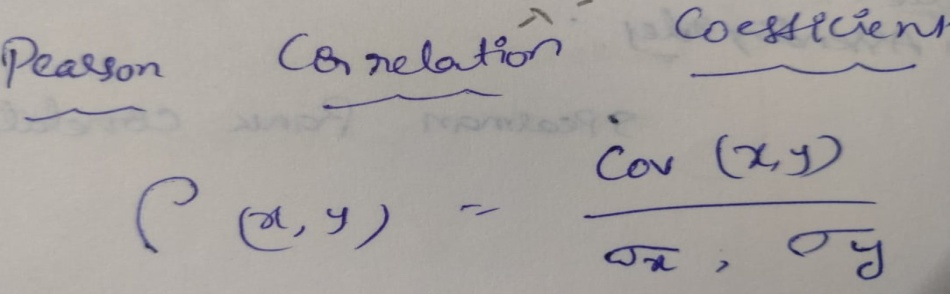 Pearson Correlation Coefficient
ρ (x, y) = Cov (x, y) / σx , σy